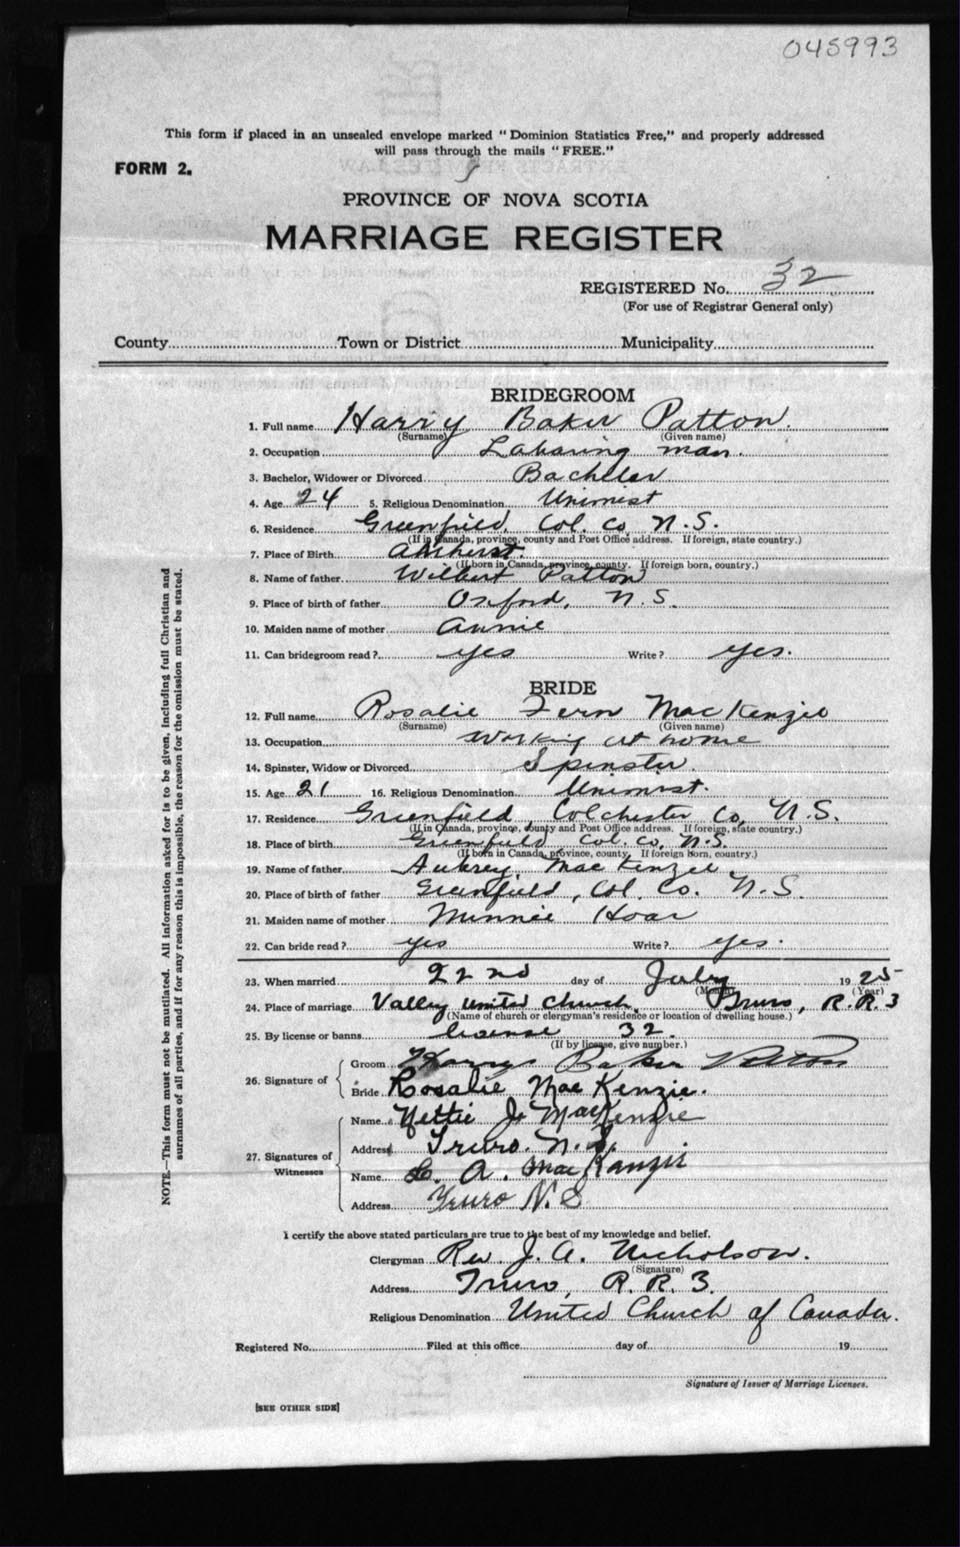 045993
This form if placed in an unsealed envelope marked "Dominion Statistics Free," and properly addressed
will pass through the mails "FREE."
FORM 2.
PROVINCE OF NOVA SCOTIA
MARRIAGE REGISTER
REGISTERED No. 32
(For use of Registrar General only)
County Town or District Municipality
BRIDEGROOM
1. Full name Harry Baker Patton.
(Surname) (Given name)
2. Occupation Laboring man.
3. Bachelor, Widower or Divorced Bachelor
4. Age 24 5. Religious Denomination Unionist
6. Residence Greenfield, Col. Co, N.S.
(If in Canada, province, county and Post Office address. If foreign, state country.)
7. Place of Birth Amherst.
(If born in Canada, province, county. If foreign born, country.)
8. Name of father Wilbert Patton
9. Place of birth of father Oxford, N.S.
10. Maiden name of mother Annie
11. Can bridegroom read? yes Write? yes.
BRIDE
12. Full name Rosalie Fern MacKenzie
(Surname) (Given name)
13. Occupation working at home
14. Spinster, Widow or Divorced Spinster.
15. Age 21 16. Religious Denomination Unionist.
17. Residence Greenfield, Colchester Co, N.S.
(If in Canada, province, county and Post Office address. If foreign, state country.)
18. Place of birth Greenfield Col. Co, N.S.
(If born in Canada, province, county, If foreign born, country.)
19. Name of father Aubrey MacKenzie
20. Place of birth of father Greenfield, Col. Co. N.S.
21. Maiden name of mother Minnie Hoar
22. Can bride read? yes Write? yes.
23. When married 22nd day of July 1925
(Month) (Year)
24. Place of marriage Valley United Church, Truro, R.R.3
(Name of church or clergyman's residence or location of dwelling house.)
25. By license or banns license 32
(If by license, give number.)
26. Signature of
Groom Harry Baker Patton
Bride Rosalie MacKenzie.
27. Signatures of Witnesses
Name Nettie J. MacKenzie
Address Truro. N.S.
Name A. MacKenzie
Address Truro N.S
I certify the above stated particulars are true to the best of my knowledge and belief.
Clergyman Rev. J. A. Nicholson.
(Signature)
Address Truro, R.R.3.
Religious Denomination United Church of Canada.
Registered No. Filed at this office day of 19
Signature of Issuer of Marriage Licenses.
[SEE OTHER SIDE]
NOTE.—This form must not be mutilated. All information asked for is to be given, including full Christian and
surnames of all parties, and if for any reason this is impossible, the reason for the omission must be stated.